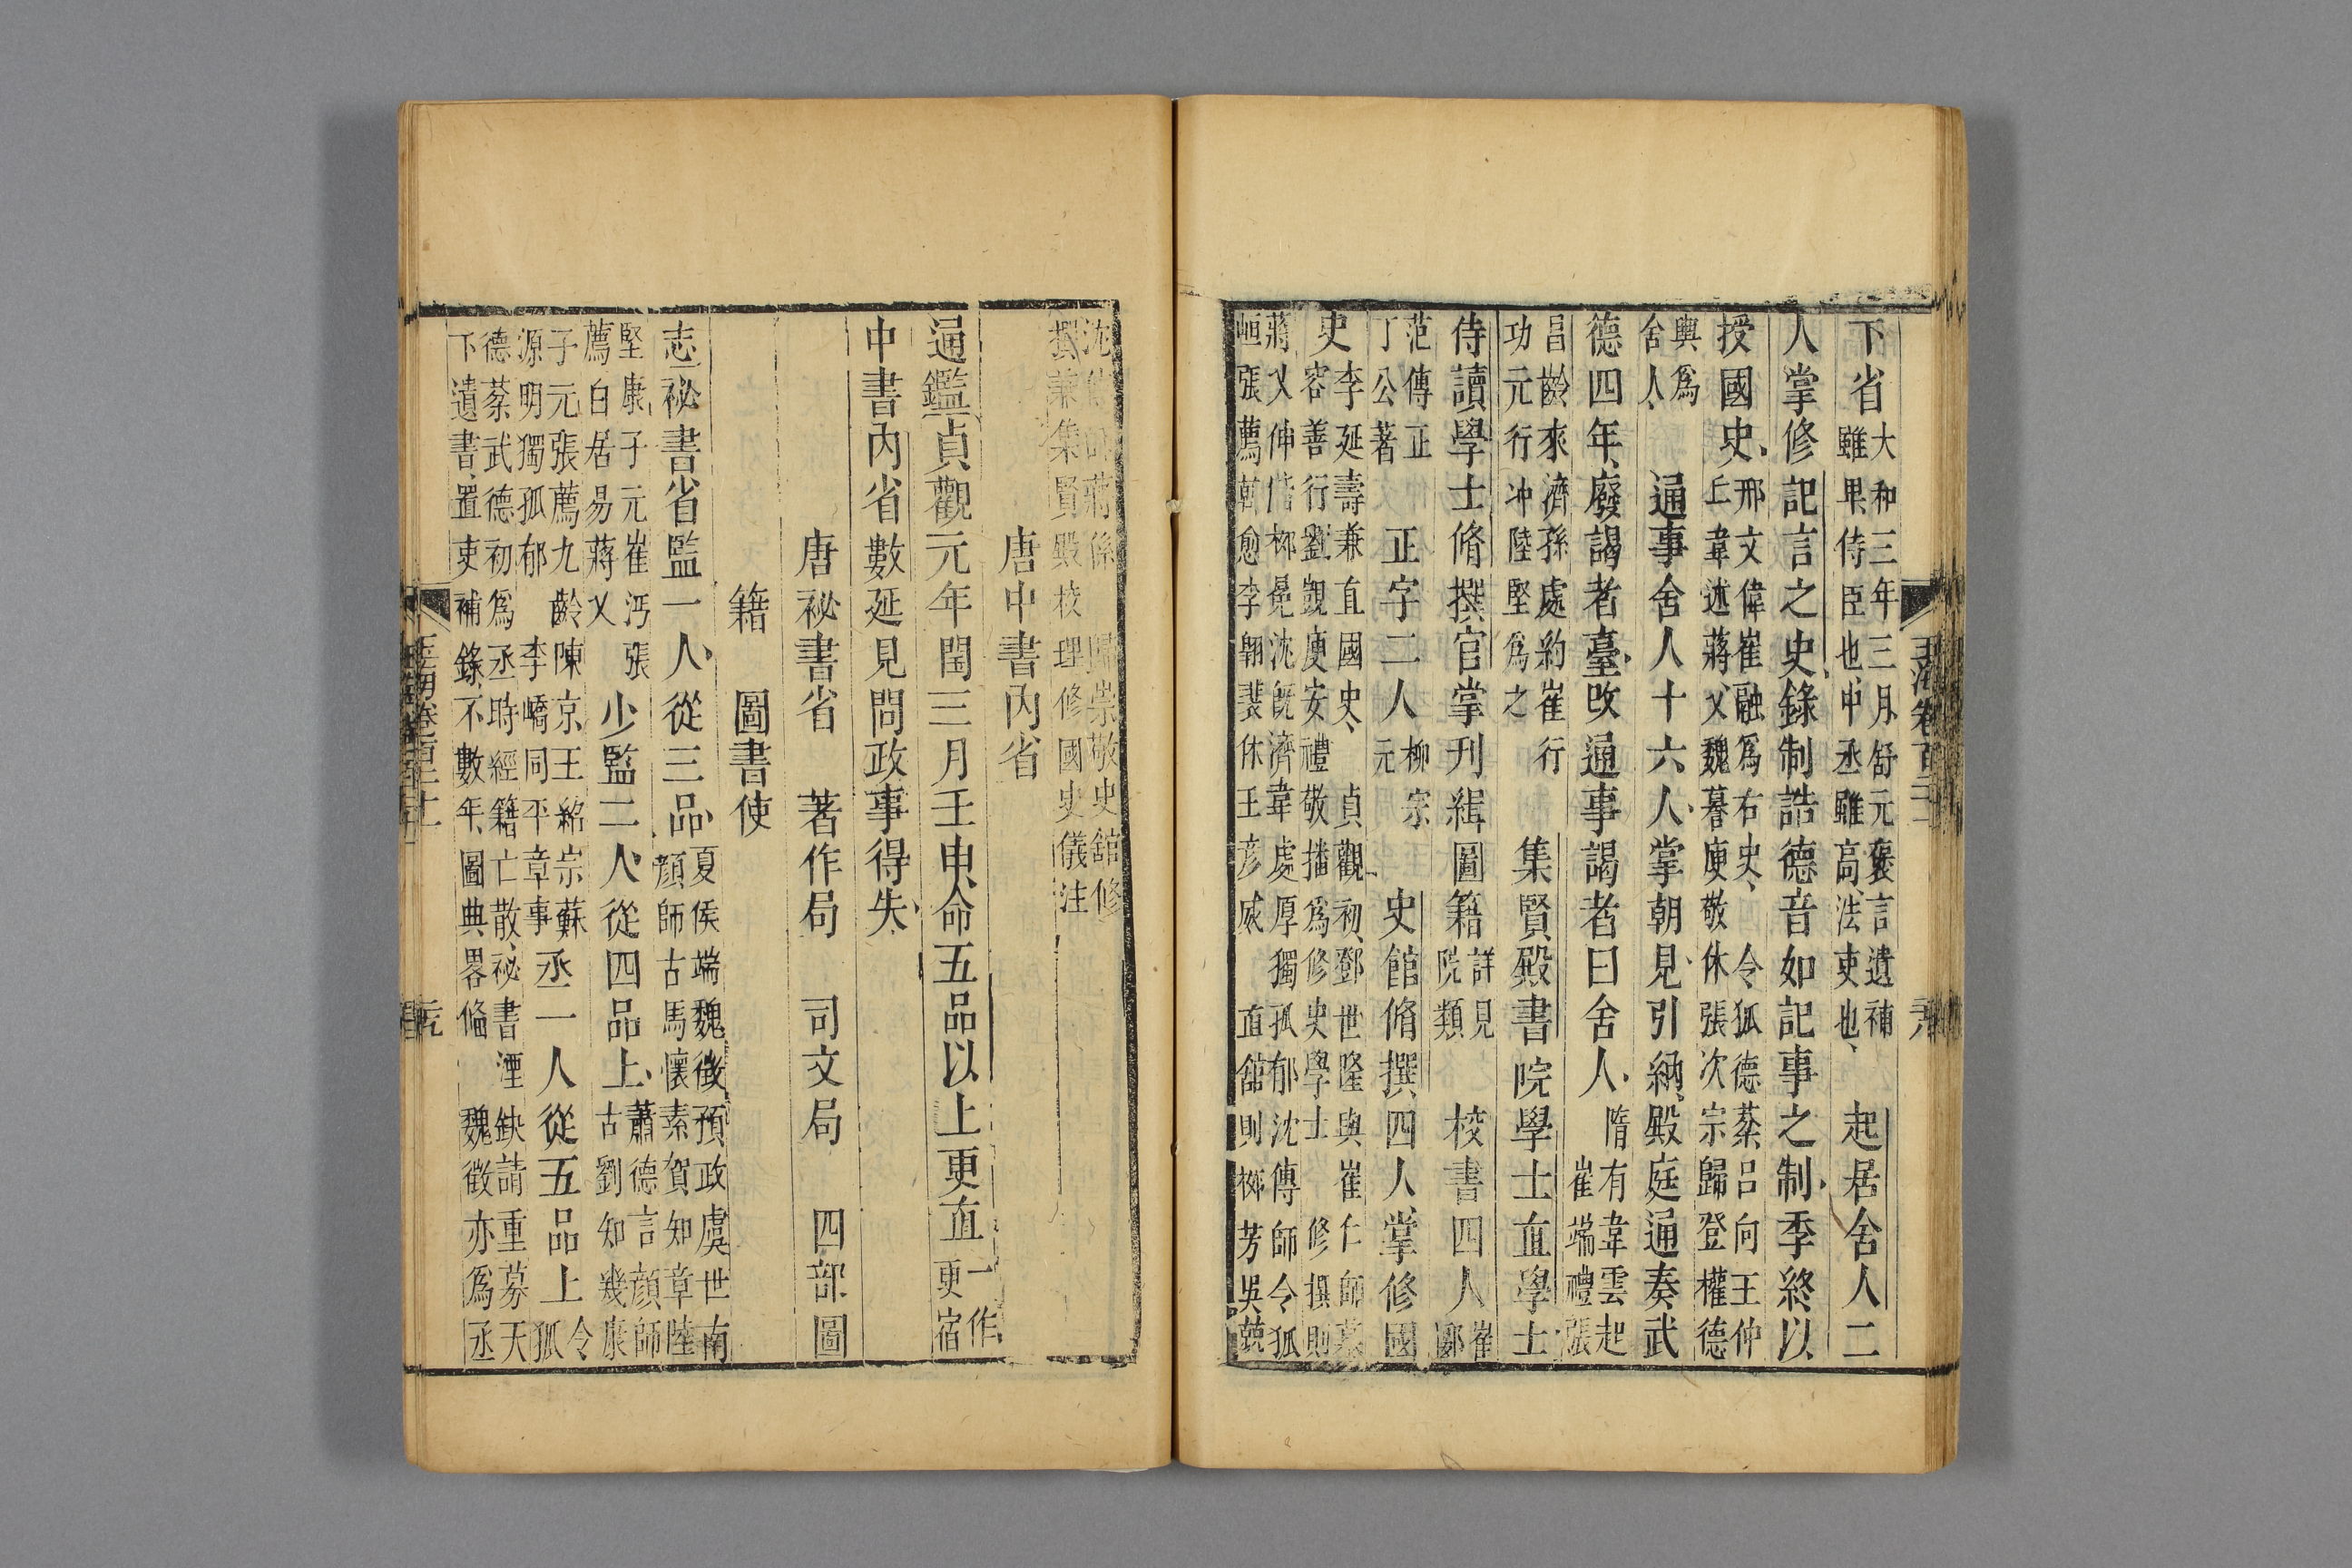 下省大和三年三月舒元褒言遺補
雖卑侍臣也中丞雖高法吏也 起居舍人二
人掌修記言之史錄制誥德音如記事之制季終以
授國史邢文偉崔融爲右史令狐德棻呂向王仲
丘韋述蔣乂魏謩庾敬休張次宗歸登權德
輿爲
舍人 通事舍人十六人掌朝見引納殿庭通奏武
德四年廢謁者臺改通事謁者曰舍人隋有韋雲起
崔端禮張
昌齡來濟孫處約崔行
功元行沖陸堅爲之 集賢殿書院學士直學士
侍讀學士脩撰官掌刊緝圖籍詳見
院類 校書四人崔
郾
范傳正
丁公著 正字二人柳宗
元 史館脩撰四人掌修國
史李延壽兼直國史貞觀初鄧世隆與崔仁師慕
容善行劉覬庾安禮敬播爲修史學士 修撰則
蔣乂伸偕柳冕沈旣濟韋處厚獨孤郁沈傳師令狐
峘張薦韓愈李翱裴休王彥威 直館則柳芳吳兢
沈傳師蔣係 歸崇敬史館修
撰兼集賢殿校理修國史儀注
唐中書內省
通鑑貞觀元年閏三月壬申命五品以上更直一作
更宿
中書內省數延見問政事得失
唐祕書省 著作局 司文局 四部圖
籍 圖書使
志祕書省監一人從三品夏侯端魏徵預政虞世南
顏師古馬懷素賀知章陸
堅康子元崔沔張
薦白居易蔣乂 少監二人從四品上蕭德言顏師
古劉知幾康
子元張薦九齡陳京王紹宗蘇
源明獨孤郁 李嶠同平章事 丞一人從五品上令
狐
德棻武德初爲丞時經籍亡散祕書湮缺請重募天
下遺書置吏補錄不數年圖典畧備 魏徵亦爲丞
玉海卷百二十一